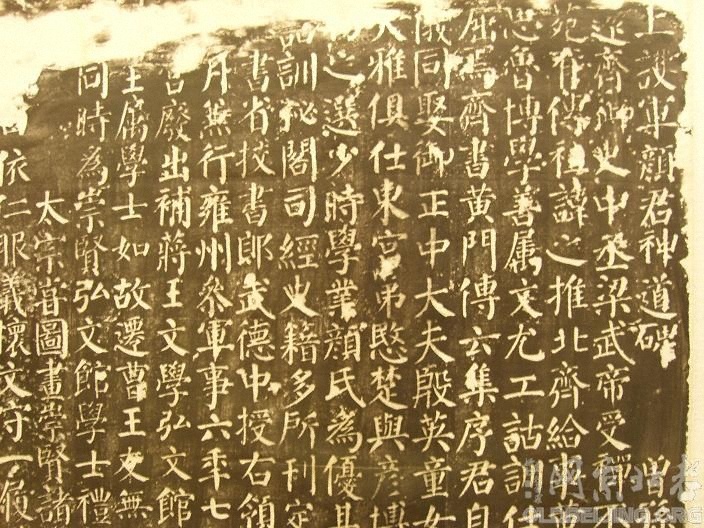 上護軍顏君神道碑
遠齊御史中丞梁武帝受禪
苑有傳祖諱之推北齊給事
思魯博學善屬文尤工詁訓仕
屈焉齊書黃門傳云集序君自
儀同娶御正中大夫殷英童女
大雅俱仕東宮弟愍楚與彥博
之選少時學業顏氏為優其
訓秘閣司經史籍多所刊定
書省校書郎武德中授右領
月兼行雍州參軍事六年七
宮廢出補蔣王文學弘文館
王屬學士如故遷曹王友無
同時為崇賢弘文館學士禮
太宗甞圖畫崇賢諸
依仁服義懷文守一履
OLDBEIJING.ORG